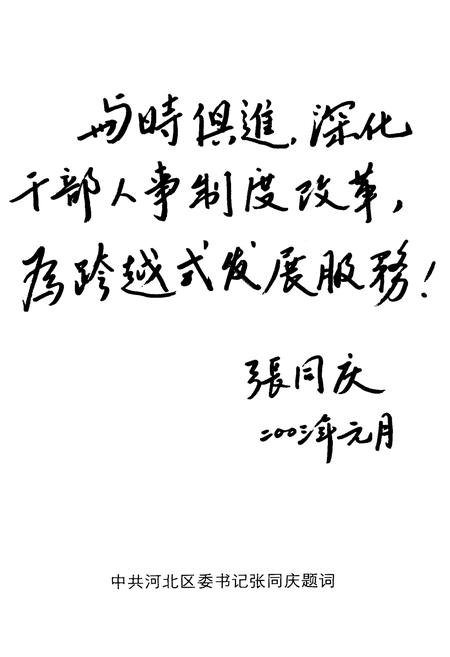 与時俱進，深化
干部人事制度改革，
為跨越式发展服務！
張同庆
二〇〇三年元月
中共河北区委书记张同庆题词